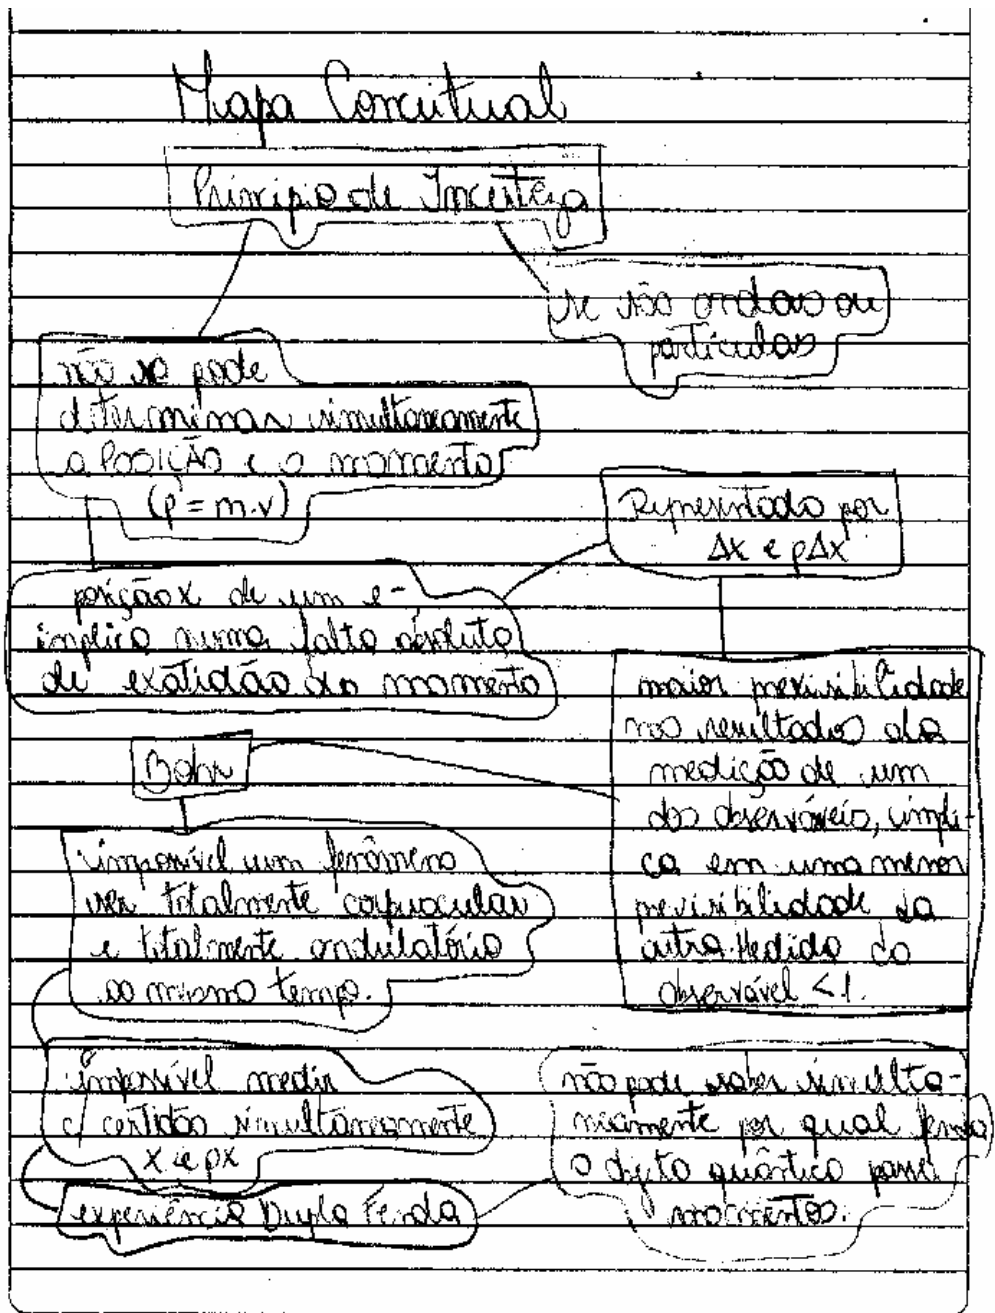 Mapa Conceitual
Princípio de Incerteza
se são ondas ou
partículas
não se pode
determinar simultaneamente
a Posição e o momento
(p = m.v)
Representado por
Δx e pΔx
posição x de um e-
implica numa falta absoluta
de exatidão do momento
maior previsibilidade
nos resultados da
medição de um
dos observáveis, impli-
ca em uma menor
previsibilidade da
outra. Medida do
observável <1.
Bohr
impossível um fenômeno
ser totalmente corpuscular
e totalmente ondulatório
ao mesmo tempo.
impossível medir
c/ certidão simultaneamente
x e px
não pode saber simulta-
neamente por qual fenda
o objeto quântico
momentos.
experiência Dupla Fenda